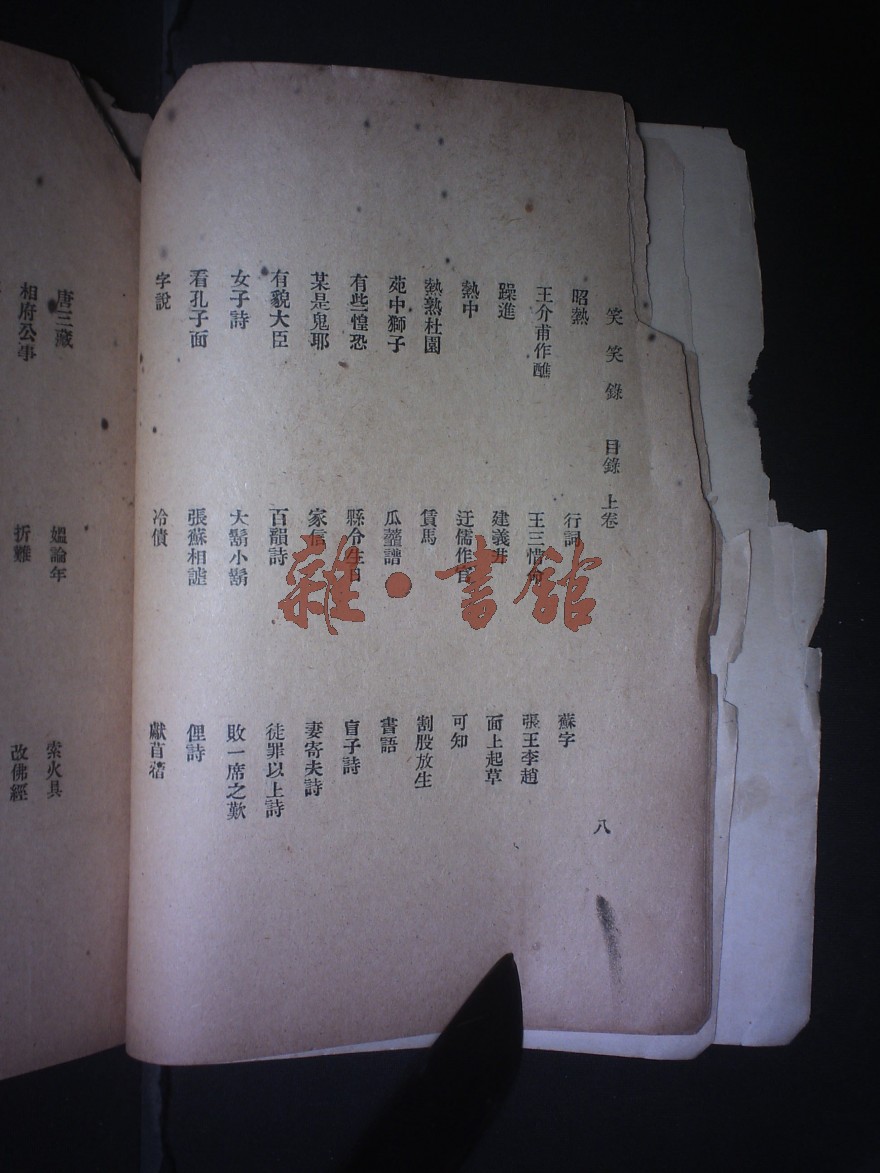 笑笑錄 目錄 上卷
八
昭熱
行詞
蘇字
王介甫作醮
王三惜命
張王李趙
躁進
建義井
面上起草
熱中
迂儒作官
可知
熱熟杜園
賃馬
割股放生
苑中獅子
瓜虀譜
書語
有些惶恐
縣令生日
盲子詩
某是鬼耶
家信
妻寄夫詩
有貌大臣
百韻詩
徒罪以上詩
女子詩
大鬍小鬍
敗一席之歡
看孔子面
張蘇相謔
俚詩
字說
冷債
獻苜蓿
唐三藏
媼論年
索火具
相府公事
折難
改佛經
雜·書館